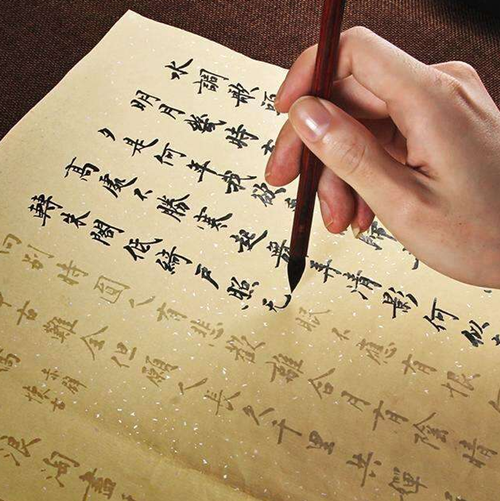 水調歌頭
明月幾時
夕是何年我欲
高處不勝寒起舞弄清影何似
轉朱閣低綺戶照无眠不應有恨
何別時圓人有悲歡離合月有陰晴
古難全但願人長久千里共嬋
赤壁懷古
浪淘盡